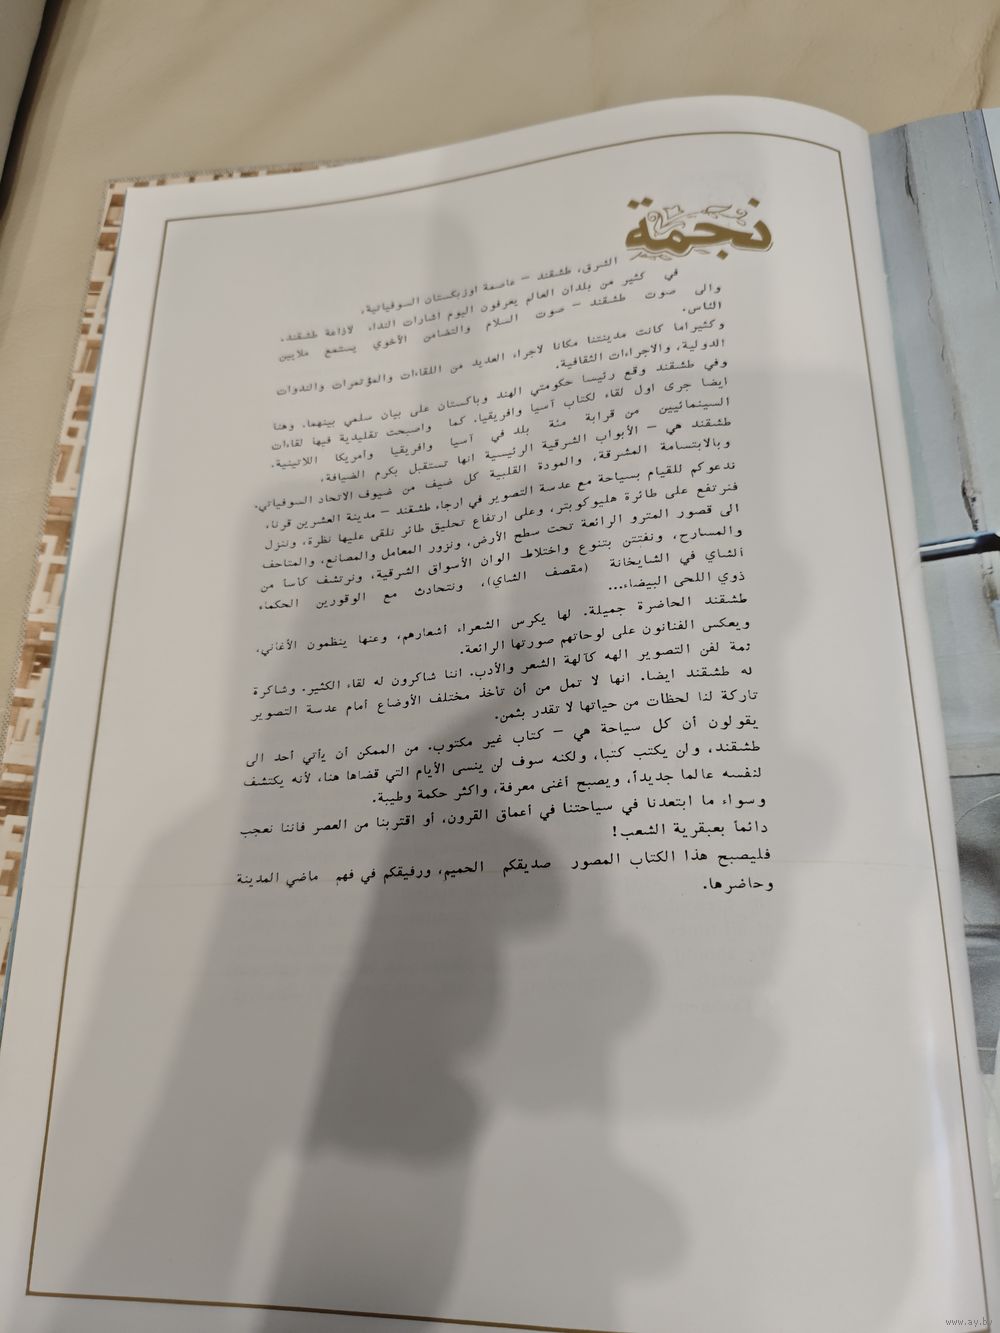 نجمة
الشرق، طشقند – عاصمة اوزبكستان السوفياتية.
في كثير من بلدان العالم يعرفون اليوم اشارات النداء لاذاعة طشقند.
والى صوت طشقند – صوت السلام والتضامن الأخوي يستمع ملايين
الناس.
وكثيراما كانت مدينتنا مكانا لاجراء العديد من اللقاءات والمؤتمرات والندوات
الدولية، والاجراءات الثقافية.
وفي طشقند وقع رئيسا حكومتي الهند وباكستان على بيان سلمي بينهما. وهنا
ايضا جرى اول لقاء لكتاب آسيا وافريقيا. كما واصبحت تقليدية فيها لقاءات
السينمائيين من قرابة مئة بلد في آسيا وافريقيا وأمريكا اللاتينية.
طشقند هي – الأبواب الشرقية الرئيسية انها تستقبل بكرم الضيافة،
وبالابتسامة المشرقة، والمودة القلبية كل ضيف من ضيوف الاتحاد السوفياتي.
ندعوكم للقيام بسياحة مع عدسة التصوير في ارجاء طشقند – مدينة العشرين قرنا،
فنرتفع على طائرة هليوكوبتر، وعلى ارتفاع تحليق طائر نلقى عليها نظرة، وننزل
الى قصور المترو الرائعة تحت سطح الأرض، ونزور المعامل والمصانع، والمتاحف
والمسارح، ونفتتن بتنوع واختلاط الوان الأسواق الشرقية، ونرتشف كاسا من
الشاي في الشايخانة (مقصف الشاي)، ونتحادث مع الوقورين الحكماء
ذوي اللحى البيضاء...
طشقند الحاضرة جميلة. لها يكرس الشعراء أشعارهم، وعنها ينظمون الأغاني.
ويعكس الفنانون على لوحاتهم صورتها الرائعة.
ثمة لفن التصوير الهه كآلهة الشعر والأدب. اننا شاكرون له لقاء الكثير. وشاكرة
له طشقند ايضا. انها لا تمل من أن تأخذ مختلف الأوضاع أمام عدسة التصوير
تاركة لنا لحظات من حياتها لا تقدر بثمن.
يقولون أن كل سياحة هي – كتاب غير مكتوب. من الممكن أن يأتي أحد الى
طشقند، ولن يكتب كتبا، ولكنه سوف لن ينسى الأيام التي قضاها هنا، لأنه يكتشف
لنفسه عالما جديداً، ويصبح أغنى معرفة، واكثر حكمة وطيبة.
وسواء ما ابتعدنا في سياحتنا في أعماق القرون، أو اقتربنا من العصر فاننا نعجب
دائماً بعبقرية الشعب!
فليصبح هذا الكتاب المصور صديقكم الحميم، ورفيقكم في فهم ماضي المدينة
وحاضرها.
www.ay.by